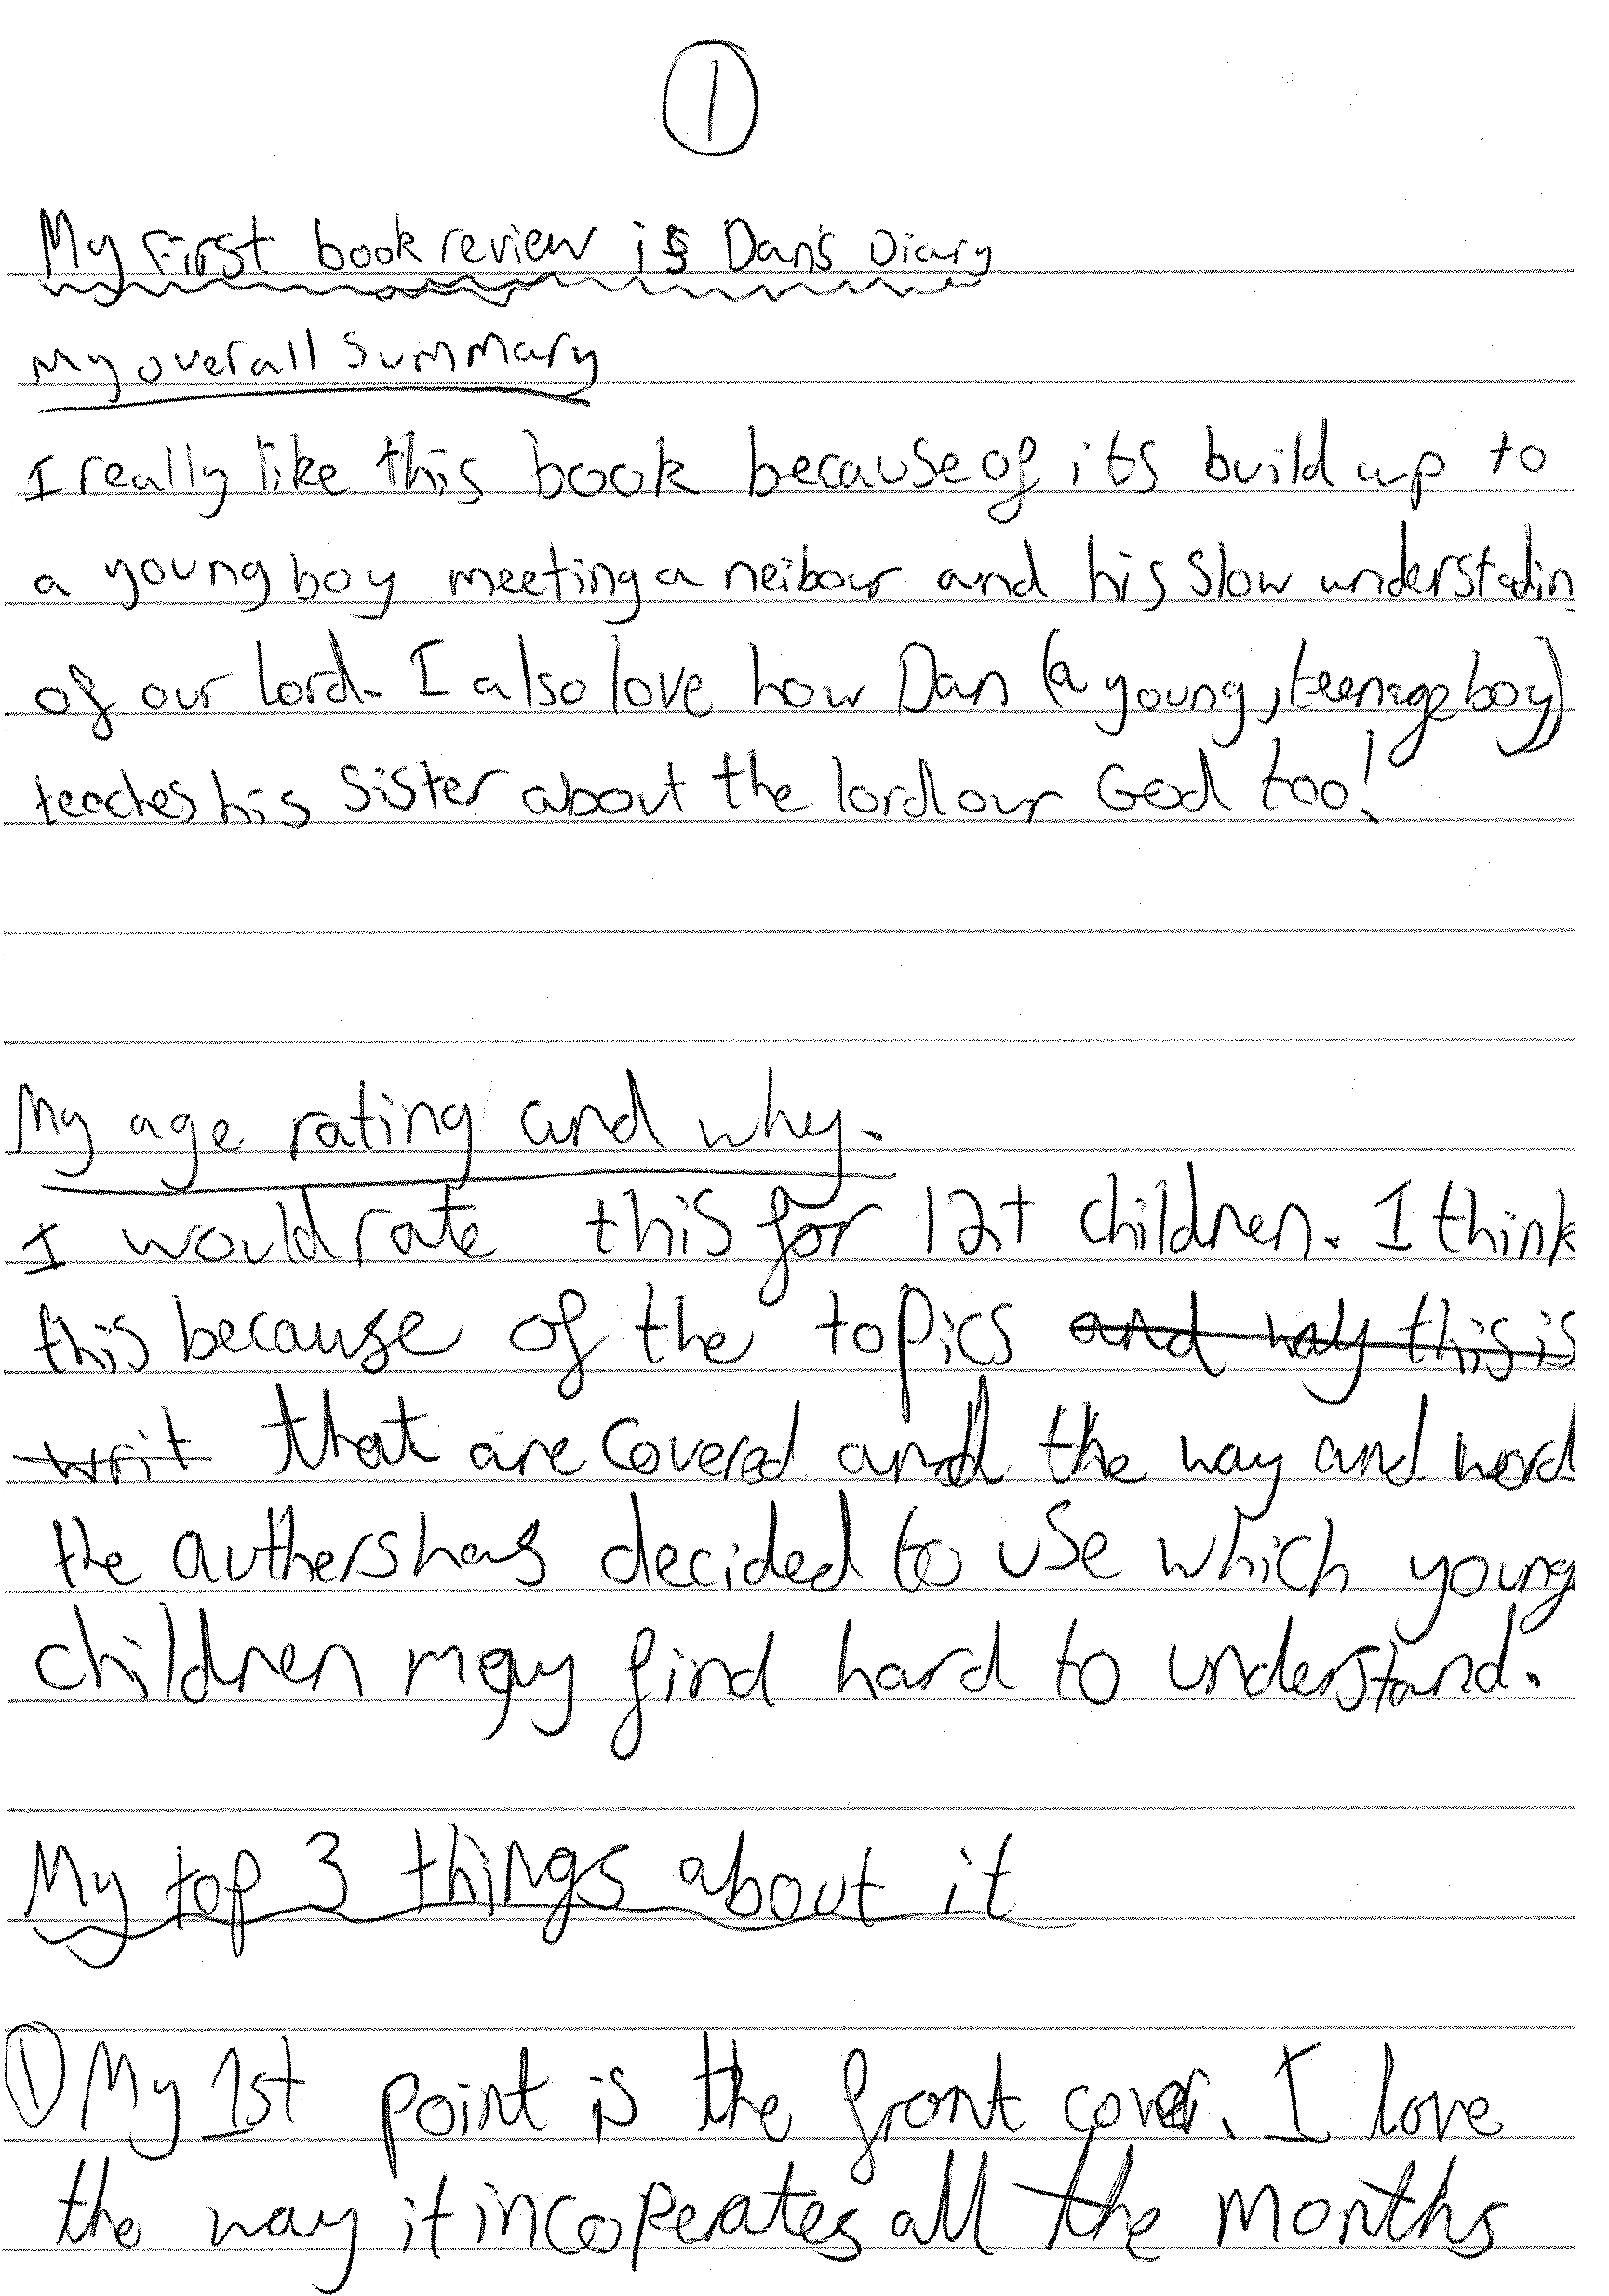 1
My first book review is Dan's Diary
My overall summary
I really like this book because of its build up to
a young boy meeting a neibour and his slow understadin
of our lord. I also love how Dan (a young, teenage boy)
teaches his sister about the lord our God too!
My age rating and why.
I would rate this for 12+ children. I think
this because of the topics and way this is
writ that are covered and the way and word
the authers has decided to use which young
children may find hard to understand.
My top 3 things about it
1 My 1st point is the front cover. I love
the way it incoperates all the months